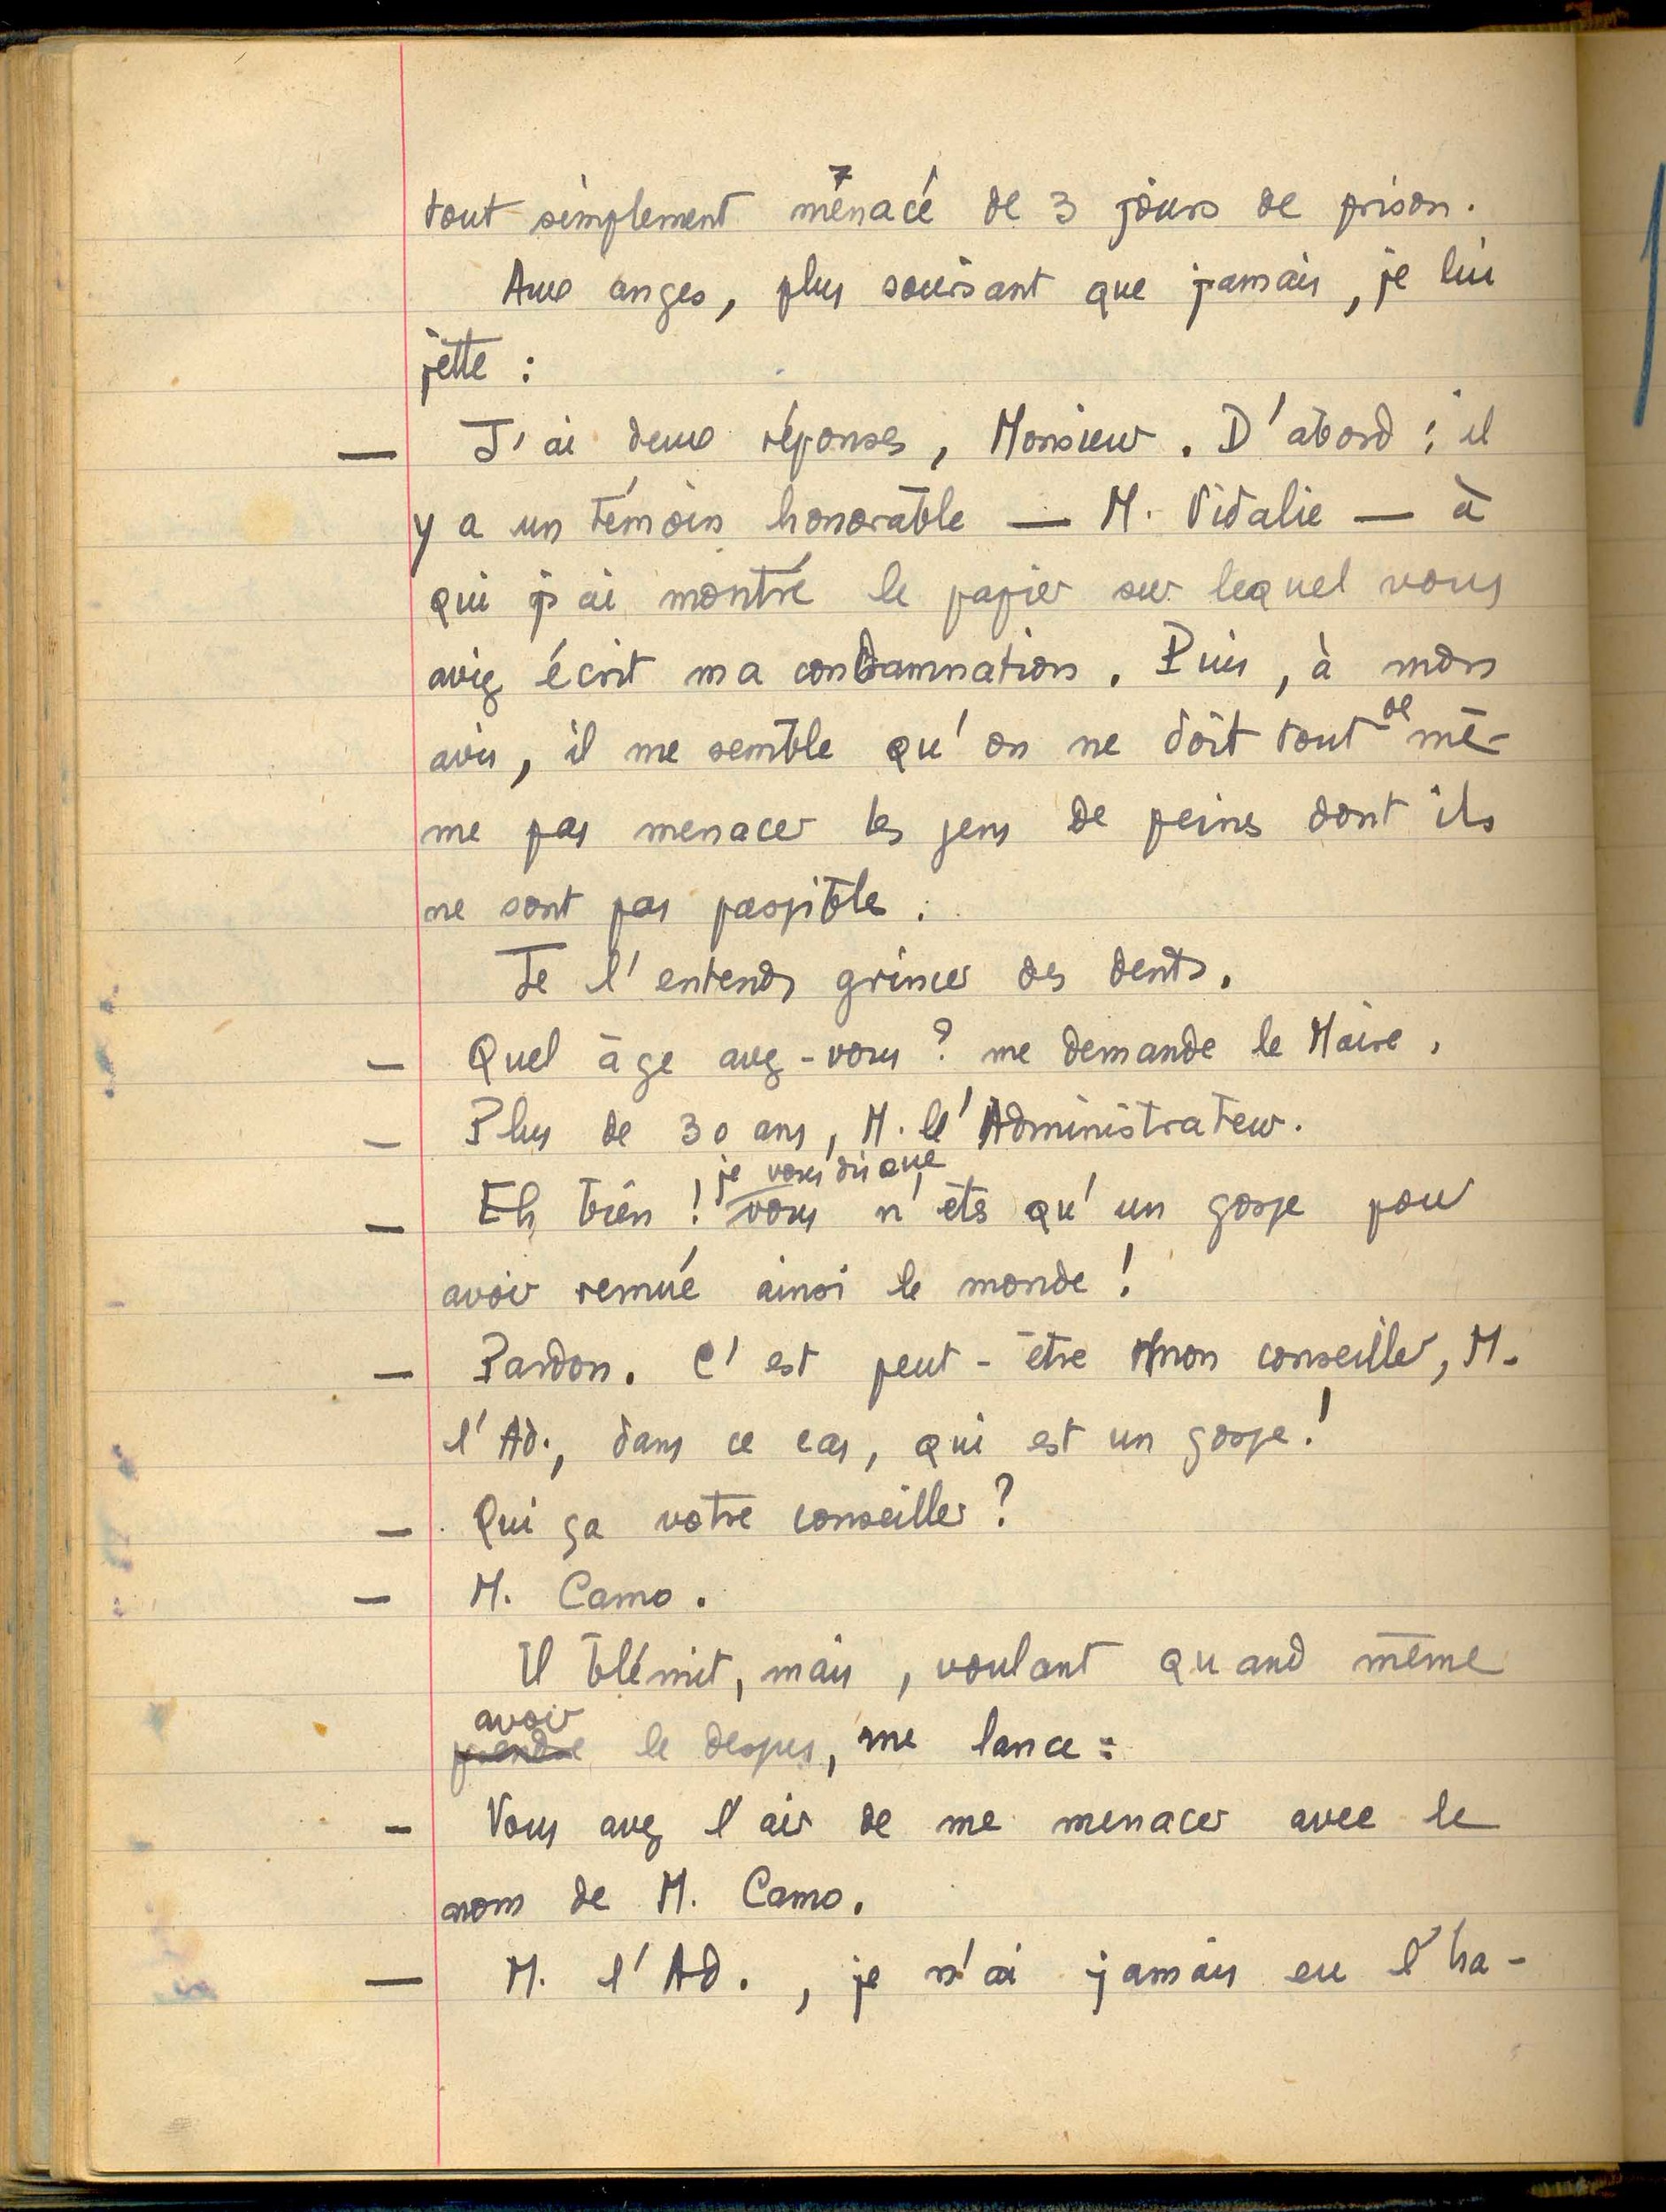 tout simplement menacé de 3 jours de prison.
Aux anges, plus souriant que jamais, je lui
jette :
— J'ai deux réponses, Monsieur. D'abord : il
y a un témoin honorable — M. Vidalie — à
qui j'ai montré le papier sur lequel vous
aviez écrit ma condamnation. Puis, à mon
avis, il me semble qu'on ne doit tout de mê-
me pas menacer les gens de peines dont ils
ne sont pas passibles.
Je l'entends grincer des dents.
— Quel âge avez-vous ? me demande le Maire.
— Plus de 30 ans, M. l'Administrateur.
je vous dis que
— Eh bien ! vous n'êtes qu'un gosse pour
avoir remué ainsi le monde !
— Pardon. C'est peut-être mon conseiller, M.
l'Ad., dans ce cas, qui est un gosse !
— Qui ça votre conseiller ?
— M. Camo.
Il blémit, mais, voulant quand même
avoir
prendre le dessus, me lance :
— Vous avez l'air de me menacer avec le
nom de M. Camo.
— M. l'Ad., je n'ai jamais eu l'ha-